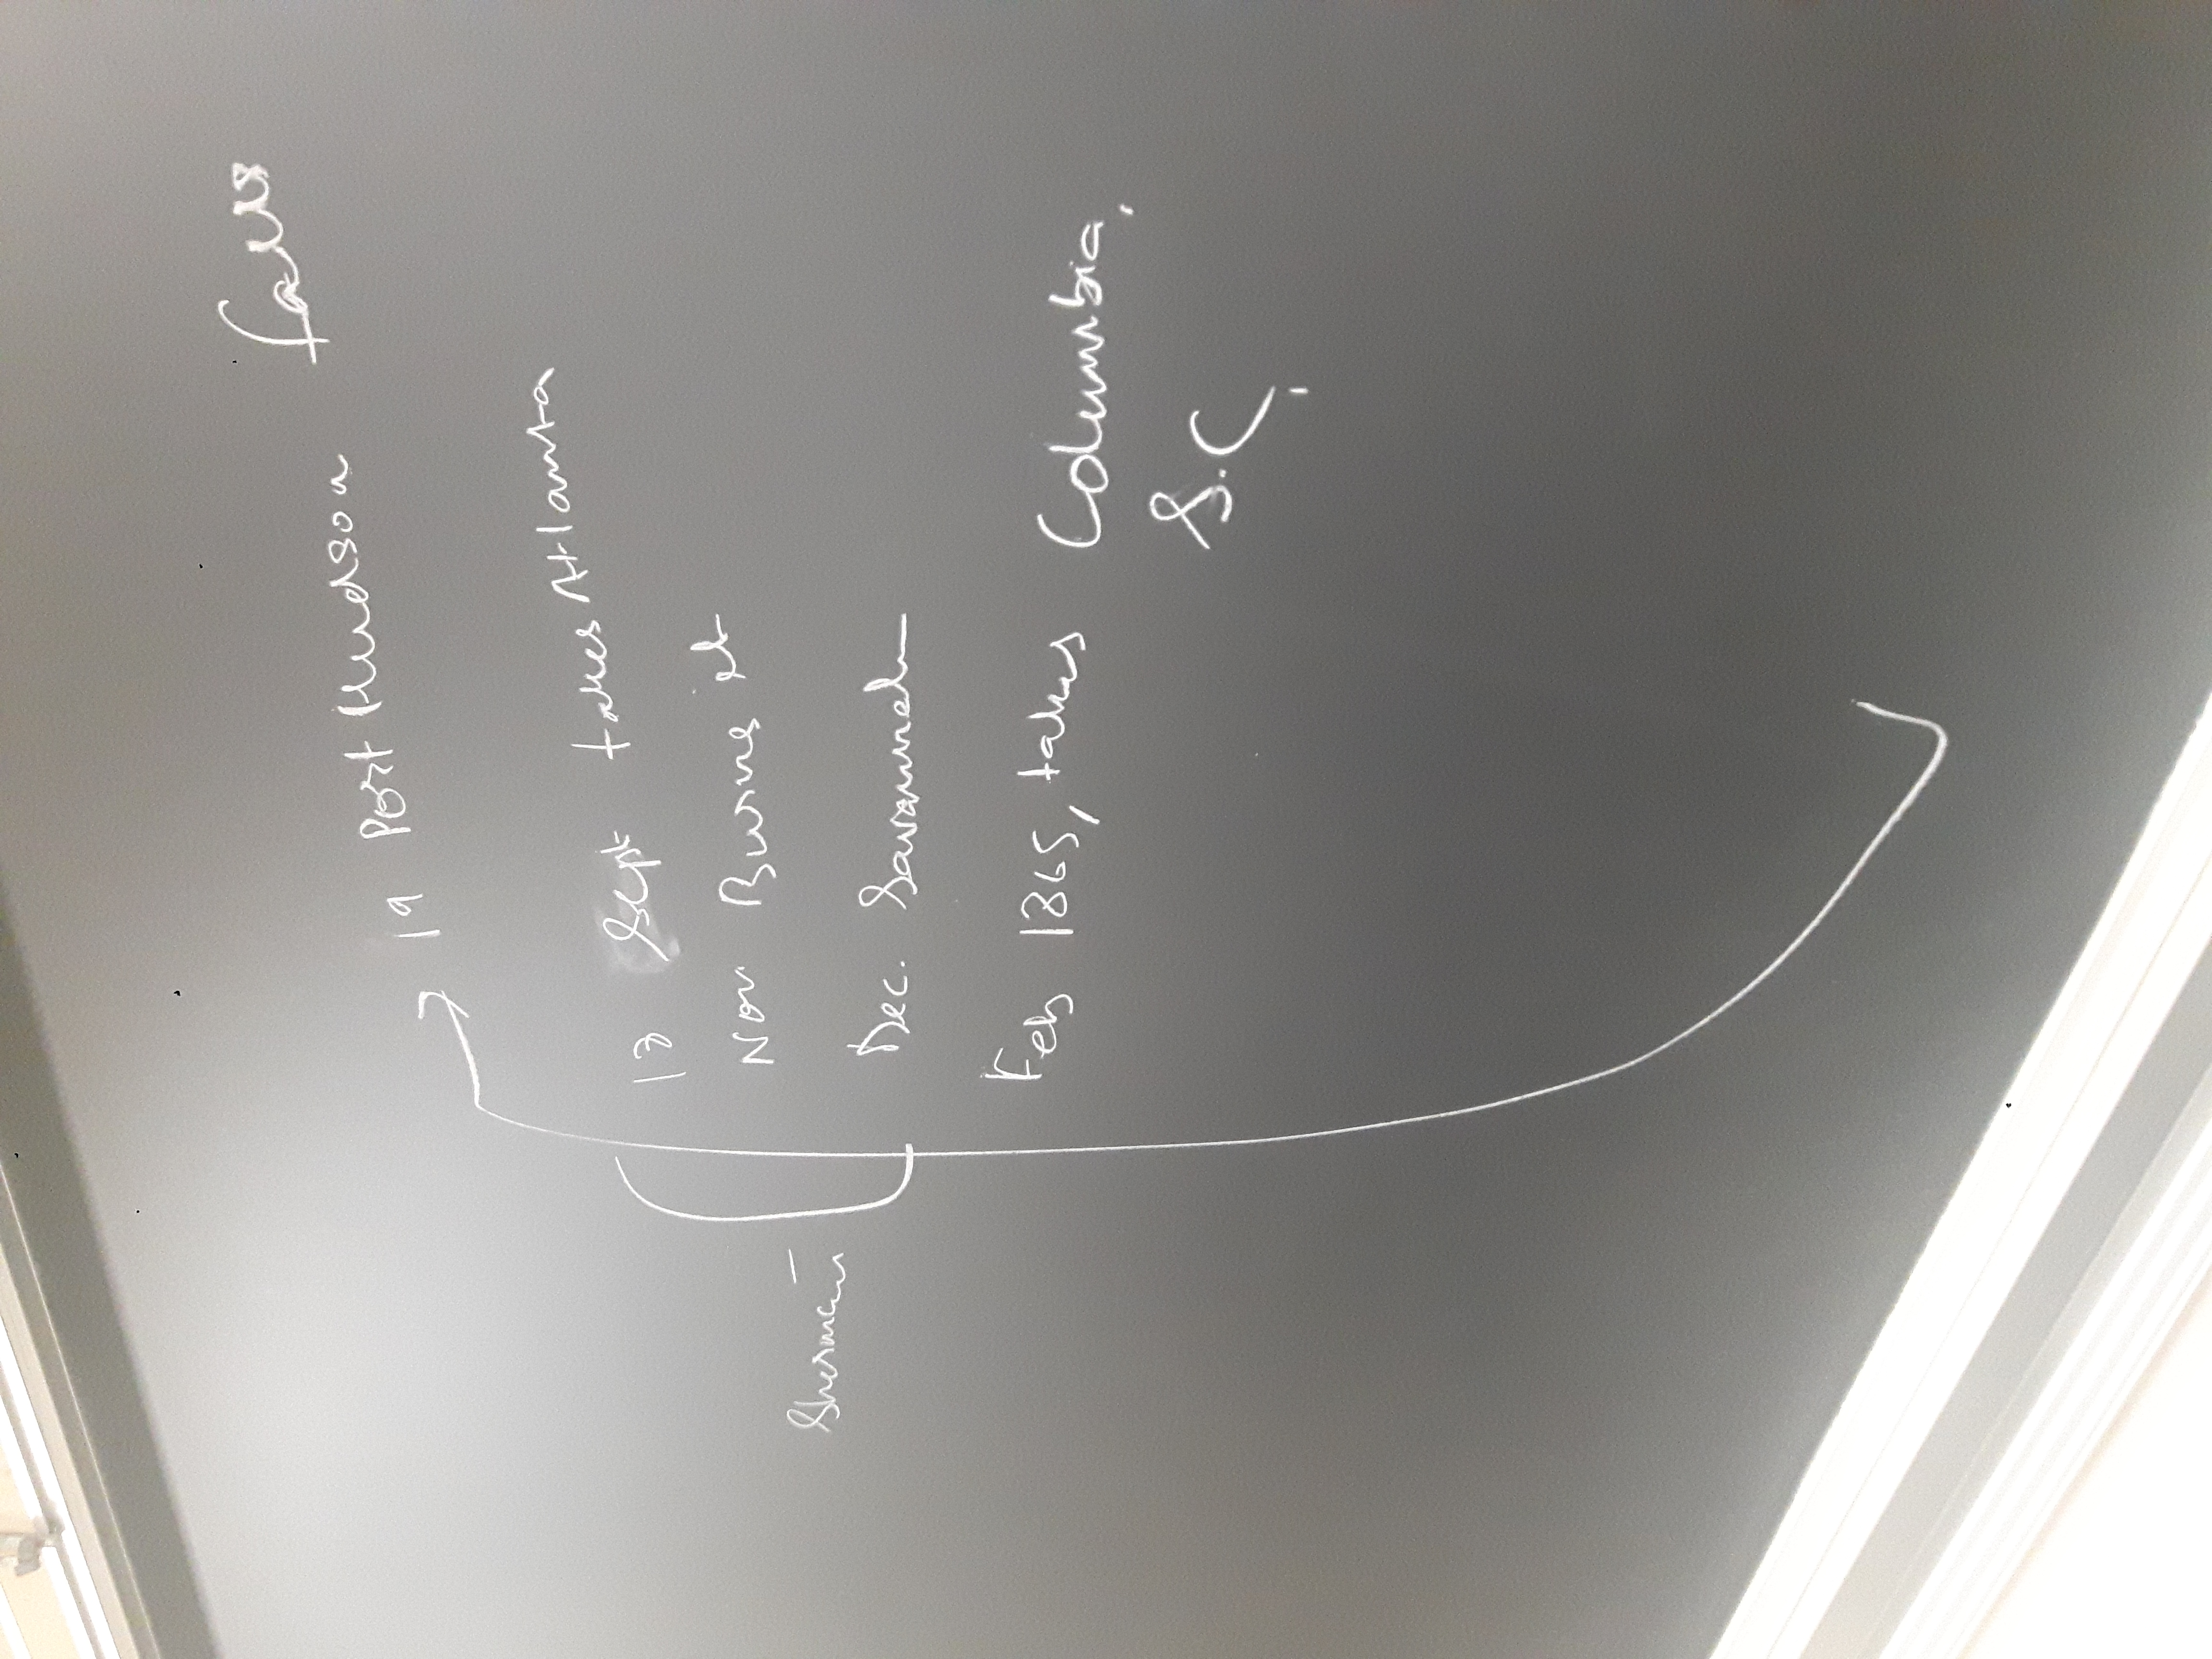 19 Port Hudson falls
13 Sept takes Atlanta
Nov Burns it
Sherman
Dec. Savannah
Feb 1865, takes Columbia,
S.C.